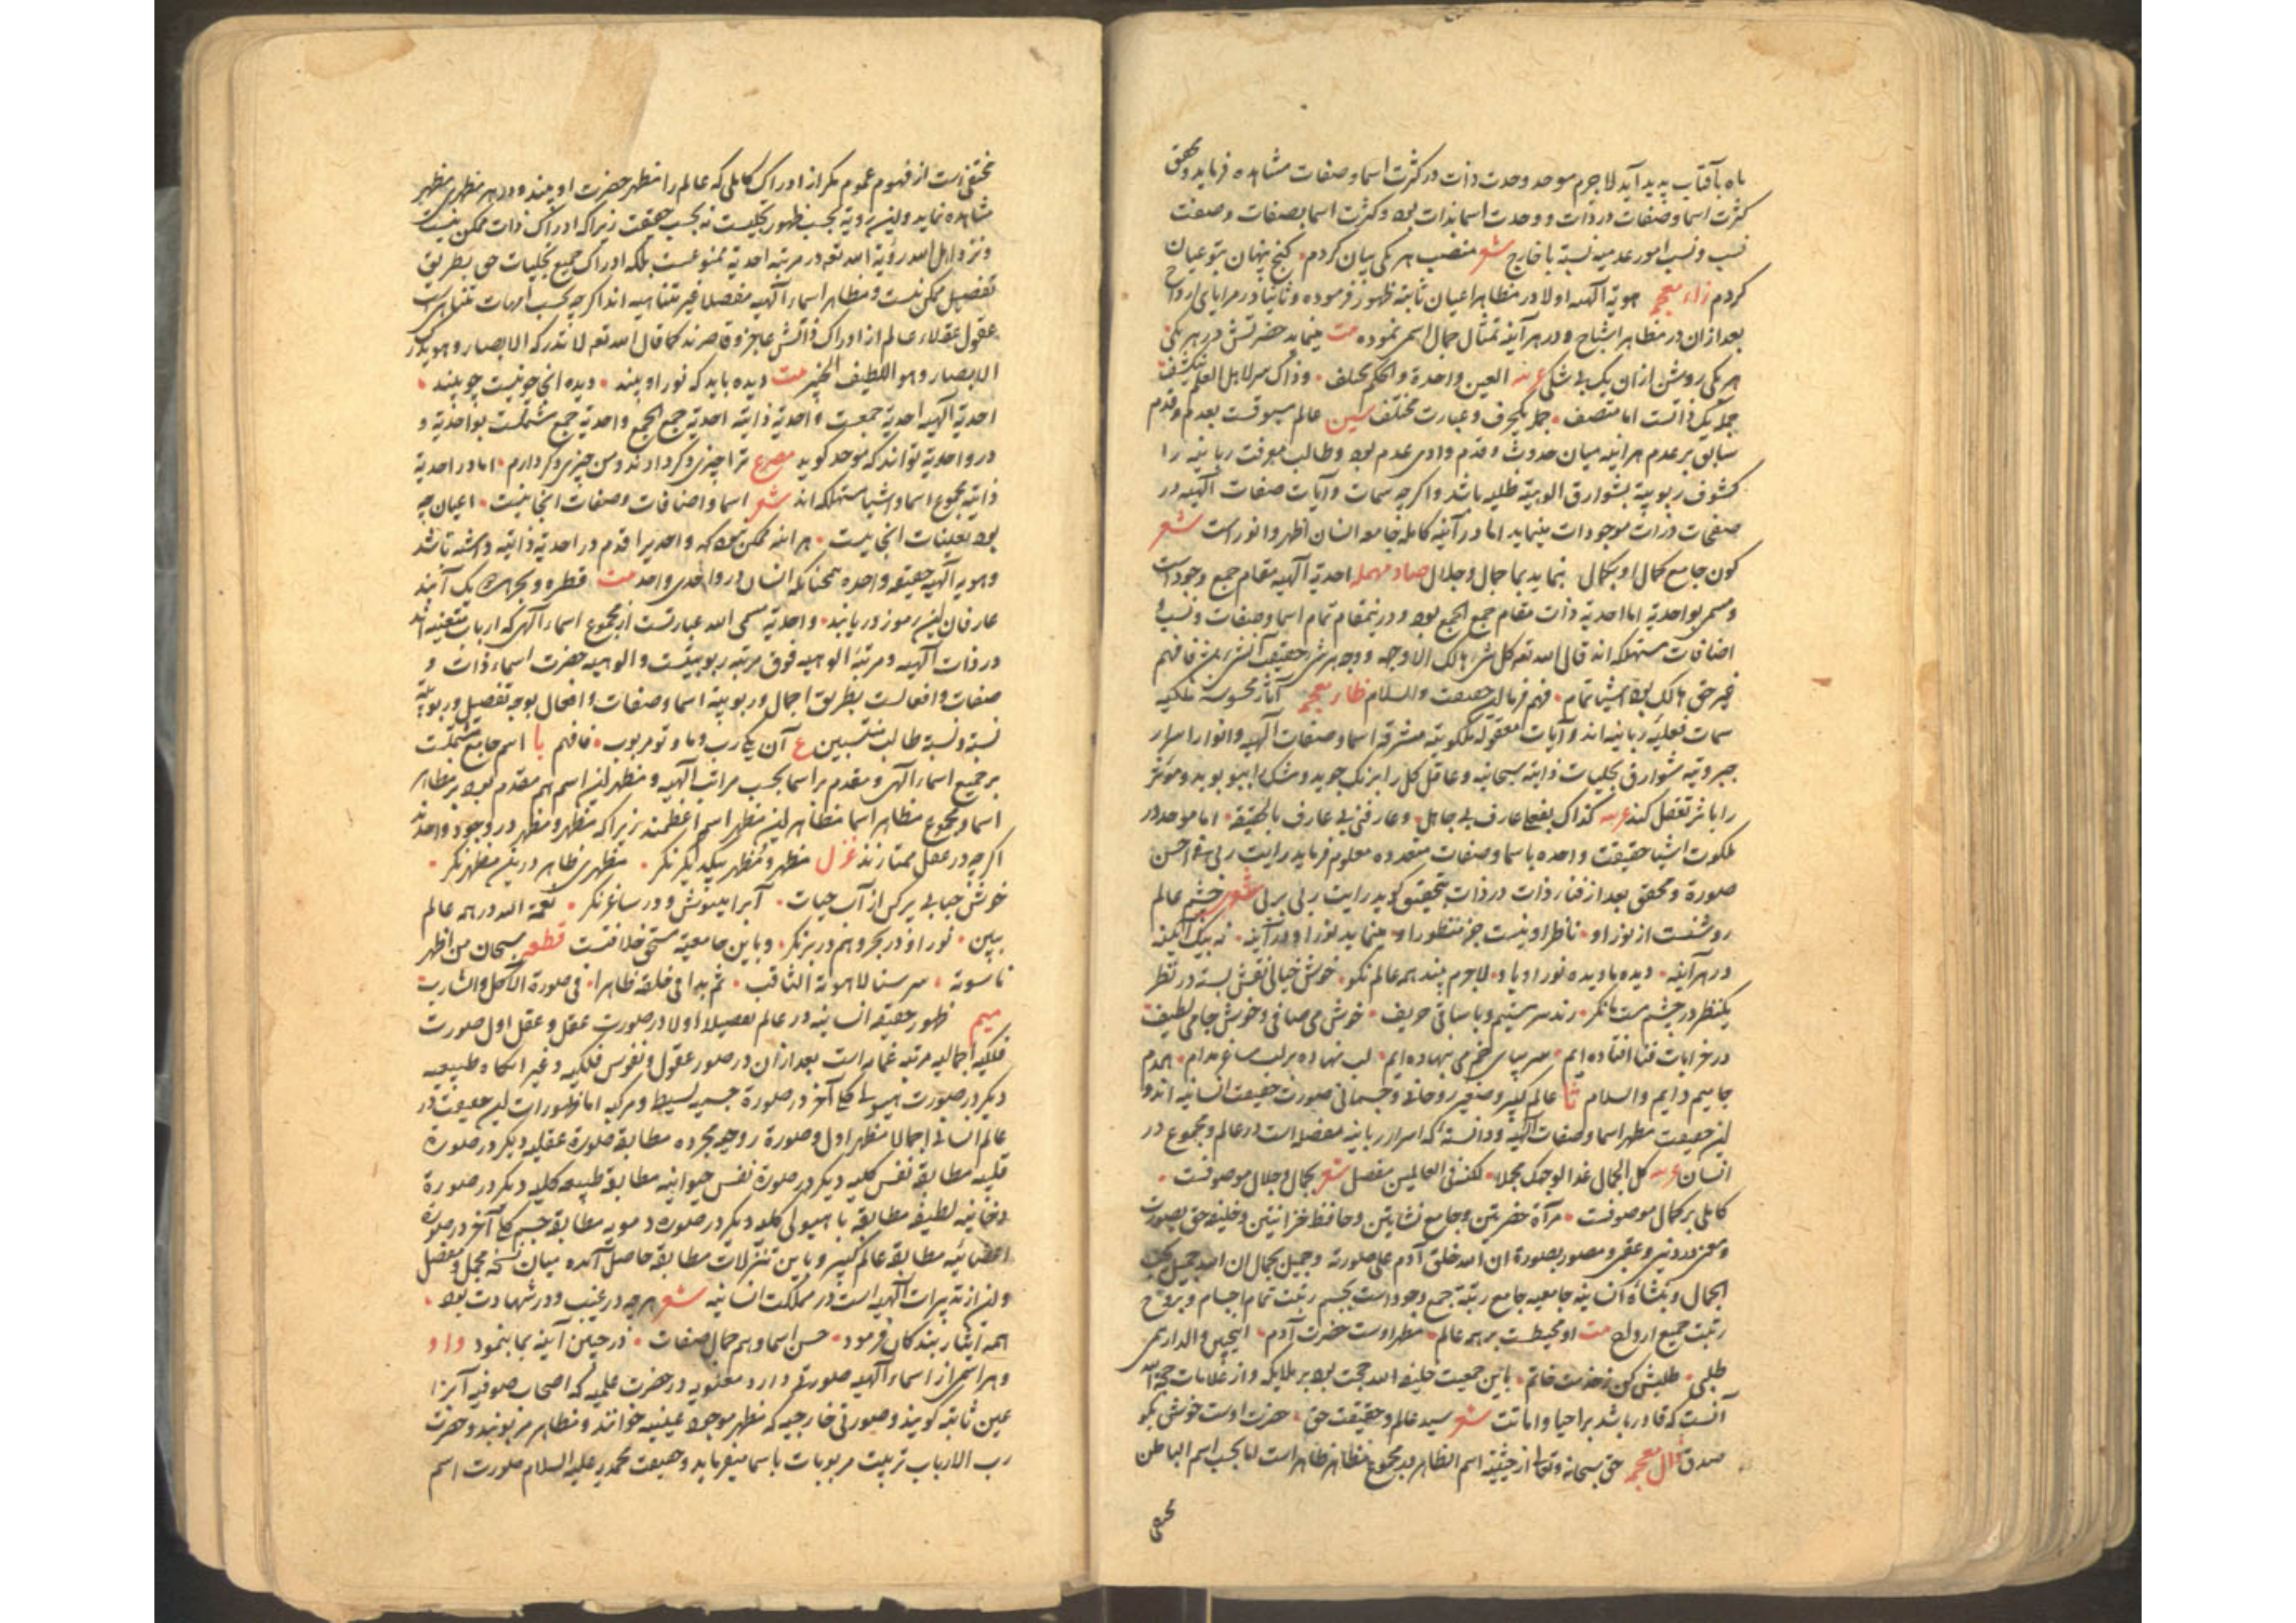 ماه بآفتاب پدید آید لاجرم موحد وحدت ذات در کثرت اسما و صفات مشاهده فرماید و محقق
کثرت اسما و صفات در ذات و وحدت اسما بذات بود و کثرت اسما بصفات و صفت
نسب و نسب امور عدمیه نسبة با خارج شعر منصب هر یکی بیان کردم گنج پنهان بتو عیان
کردم زاء معجمه هویة الهیه اولا در مظاهر اعیان ثابته ظهور فرموده و ثانیا در مرایای ارواح
بعد از ان در مظاهر اشباح و در هر آینه تمثال جمال اسمی نموده بیت مینماید حضرتش در هر یکی
هر یکی روشن ازان یک بی شکی عربیه العین واحدة والحکم مختلف وذاک سر لاهل العلم ینکشف
جمله یک ذاتست اما متصف جمله یکحرف و عبارت مختلف سین عالم مسبوقست بعدم و قدم
سابق بر عدم هر اینه میان حدوث و قدم وادی عدم بود و طالب معرفت ربانیه را
کشوف ربوبیة بشوارق الوهیة طلبد باشد و اگرچه سمات و آیات صفات الهیه در
صفحات ذرات موجودات مینماید اما در آینه کامله جامعه انسان اظهر و انور است شعر
کون جامع کمال او بکمال بنماید بما جمال و جلال صاد مهمله احدیة الهیه مقام جمع وجود است
و مسمی بواحدیة اما احدیة ذات مقام جمع الجمع بود و درینمقام تمام اسما و صفات و نسب و
اضافات مستهلکه اند قال الله تعه کل شئ هالک الا وجهه و وجه هر شئ حقیقت آنشئ باشد فافهم
غیر حق هالک بود اشیا تمام فهم فرما این حقیقت والسلام ظاء معجمه آثار محسوسه ملکیه
سمات فعلیه ربانیه اند و آیات معقوله ملکوتیه مشرقه اسما و صفات الهیه و انوار اسرار
جبروتیه شوارق تجلیات ذاتیه سبحانیه و عاقل کل را برنگ جوید و مشک را ببو بوید و مؤثر
را باثر تعقل کند عربیه کذاک بفعله عارف بی جاهل وعارفنی بی عارف بالحقیقة اما موحد در
ملکوت اشیا حقیقت واحده باسما و صفات متعدده معلوم فرماید رایت ربی فی احسن
صورة و محقق بعد از فناء ذات در ذات بتحقیق گوید رایت ربی بربی شعر چشم عالم
روشنست از نور او ناظر او نیست جز منظور او مینماید نور او در آینه نه بیک آیینه
در هر آینه دیده ها دیده نور او باو لاجرم بیند همه عالم نکو خوش خیالی نقش بسته در نظر
یکنظر در چشم مست ما نگر رند سرمستیم و با ساقی حریف خوش می صافی و خوش جامی لطیف
در خرابات فنا افتاده ایم سر بپای خم می بنهاده ایم لب نهاده بر لب ساغر مدام همدم
جامیم دایم والسلام ثا عالم کبیر و صغیر روحانی و جسمانی صورت حقیقت انسانیه اند و
این حقیقت مظهر اسما و صفات الهیه و دانسته که اسرار ربانیه مفصله است در عالم و مجموع در
انسان عربیه کل الجمال غدا لوجهک مجملا لکنه فی العالمین مفصل شعر بجمال و جلال موصوفست
کاملی بر کمال موصوفست مرآة حضرتین و جامع نشاتین و حافظ خزانتین و خلیفه حق بصورت
و معنی در دنیی و عقبی و مصور بصورة ان الله خلق آدم علی صورته و جمیل بجمال ان الله جمیل یحب
الجمال و بنشاه انسانیه جامعیه جامع رتبة جمع وجود است بجسم رتبت تمام اجسام و بروح
رتبت جمیع ارواح بیت او محیطست بر همه عالم مظهر اوست حضرت آدم اینچنین والدار می
طلبی طلبش کن ز خدمت خاتم باین جمعیت خلیفة الله حجت بود بر ملایکه و از علامات حجة الله
آنست که قادر باشد بر احیا و اماتت شعر سید عالم و حقیقت حق حضرت اوست خوش بگو
صدق ذال معجمه حق سبحانه و تعالی از حیثیت اسم الظاهر بر مجموع مظاهر ظاهر است اما بحسب اسم الباطن
مختفی
مختفی است از فهوم عموم مگر از ادراک کاملی که عالم را مظهر حضرت او بیند و در هر مظهری مظهر
مشاهده نماید و این رویة بحسب ظهور تجلیست نه بحسب حقیقت زیرا که ادراک ذات ممکن نیست
و نزد اهل الله رؤیة الله تعه در مرتبه احدیة ممنوعست بلکه ادراک جمیع تجلیات حق بطریق
تفصیل ممکن نیست و مظاهر اسماء الهیه مفصلا غیر متناهیه اند اگرچه بحسب امهات متناهی است
عقول عقلاء عالم از ادراک ذاتش عاجز و قاصرند کما قال الله تعه لا تدرکه الابصار وهو یدرک
الابصار وهو اللطیف الخبیر بیت دیده باید که نور او بیند دیده انی چو نیست چو بیند
احدیة الهیه احدیة جمعست و احدیة ذاتیه احدیة جمع الجمع و احدیة جمع مشتملست بواحدیة و
در واحدیة تواند که موحد گوید مصرع ترا چیزی دگر دادند و من چیزی دگر دارم اما در احدیة
ذاتیه مجموع اسما و اشیا مستهلکه اند شعر اسما و اضافات و صفات انجا نیست اعیان چه
بود تعینات انجا نیست هر اینه ممکن نبود که واحدی را قدم در احدیة ذاتیه داشته باشد
و هویه الهیه حقیقة واحده همچنانکه انسان در واحدی واحد بیت قطره و بحر هر یک آبند
عارفان این رموز دریابند و احدیة مسمی الله عبارتست از مجموع اسماء الهی که ارباب متعینه اند
در ذات الهیه و مرتبه الوهیه فوق مرتبه ربوبیتست و الوهیه حضرت اسماء ذات و
صفات و افعالست بطریق اجمال و ربوبیة اسما و صفات و افعال بوجه تفصیل و ربوبیة
نسبة و نسبة طالب منتسبین ع آن یکی رب و ما و تو مربوب فافهم با اسم جامع مشتملست
بر جمیع اسماء الهی و مقدم بر اسما بحسب مراتب الهیه و مظهر این اسم هم مقدم بود بر مظاهر
اسما و مجموع مظاهر اسما مظاهر این مظهر اسم اعظمند زیرا که مظهر و مظهر در وجود واحدند
اگرچه در عقل ممتازند غزل مظهر و مظهر بیکدیگر نگر مظهری ظاهر درین مظهر نگر
خوش حبابی پر کن از آب حیات آبرا مینوش و در ساغر نگر نعمة الله در همه عالم
ببین نور او در بحر و هم در بر نگر و باین جامعیة مستحق خلافتست قطعه سبحان من اظهر
ناسوته سر سنا لاهوته الثاقب ثم بدا فی خلقه ظاهرا فی صورة الآکل والشارب
میم ظهور حقیقه انسانیه در عالم تفصیلا اولا در صورت عقل و عقل اول صورت
فلکیه اجمالیه مرتبه عماییه است بعد ازان در صور عقول و نفوس فلکیه و غیر انگاه طبیعیه
دیگر در صورت هیولی کلیه آخر در صورة جسمیه بسیط و مرکبه اما ظهورات این حقیقت در
عالم انسانی اجمالا مظهر اول و صورة روحیه مجرده مطابقه صورة عقلیه دیگر در صورة
قلبیه مطابقه نفس کلیه دیگر در صورة نفس حیوانیه مطابقه طبیعه کلیه دیگر در صورة
دخانیه لطیفه مطابقه با هیولی کلیه دیگر در صوره دمویه مطابقه جسم کل آخر در صورة
اعضائیه مطابقه عالم کبیر و باین تنزلات مطابقه حاصل آمده میان نسخه مجمل و مفصل
و این از تدبیرات الهیه است در مملکت انسانیه شعر هرچه در غیب و در شهادت بود
همه ایثار بندگان فرمود حسن اسما و هم جمال صفات در چنین آینه بما بنمود واو
و هر اسمی از اسماء الهیه صورتی دارد معنویه در حضرت علمیه که اصحاب صوفیه آنرا
عین ثابته گویند و صورتی خارجیه که مظهر موجوده عینیه خوانند و مظاهر مربوبند و حضرت
رب الارباب تربیت مربوبات باسما میفرماید و حقیقت محمدیه علیه السلام صورت اسم